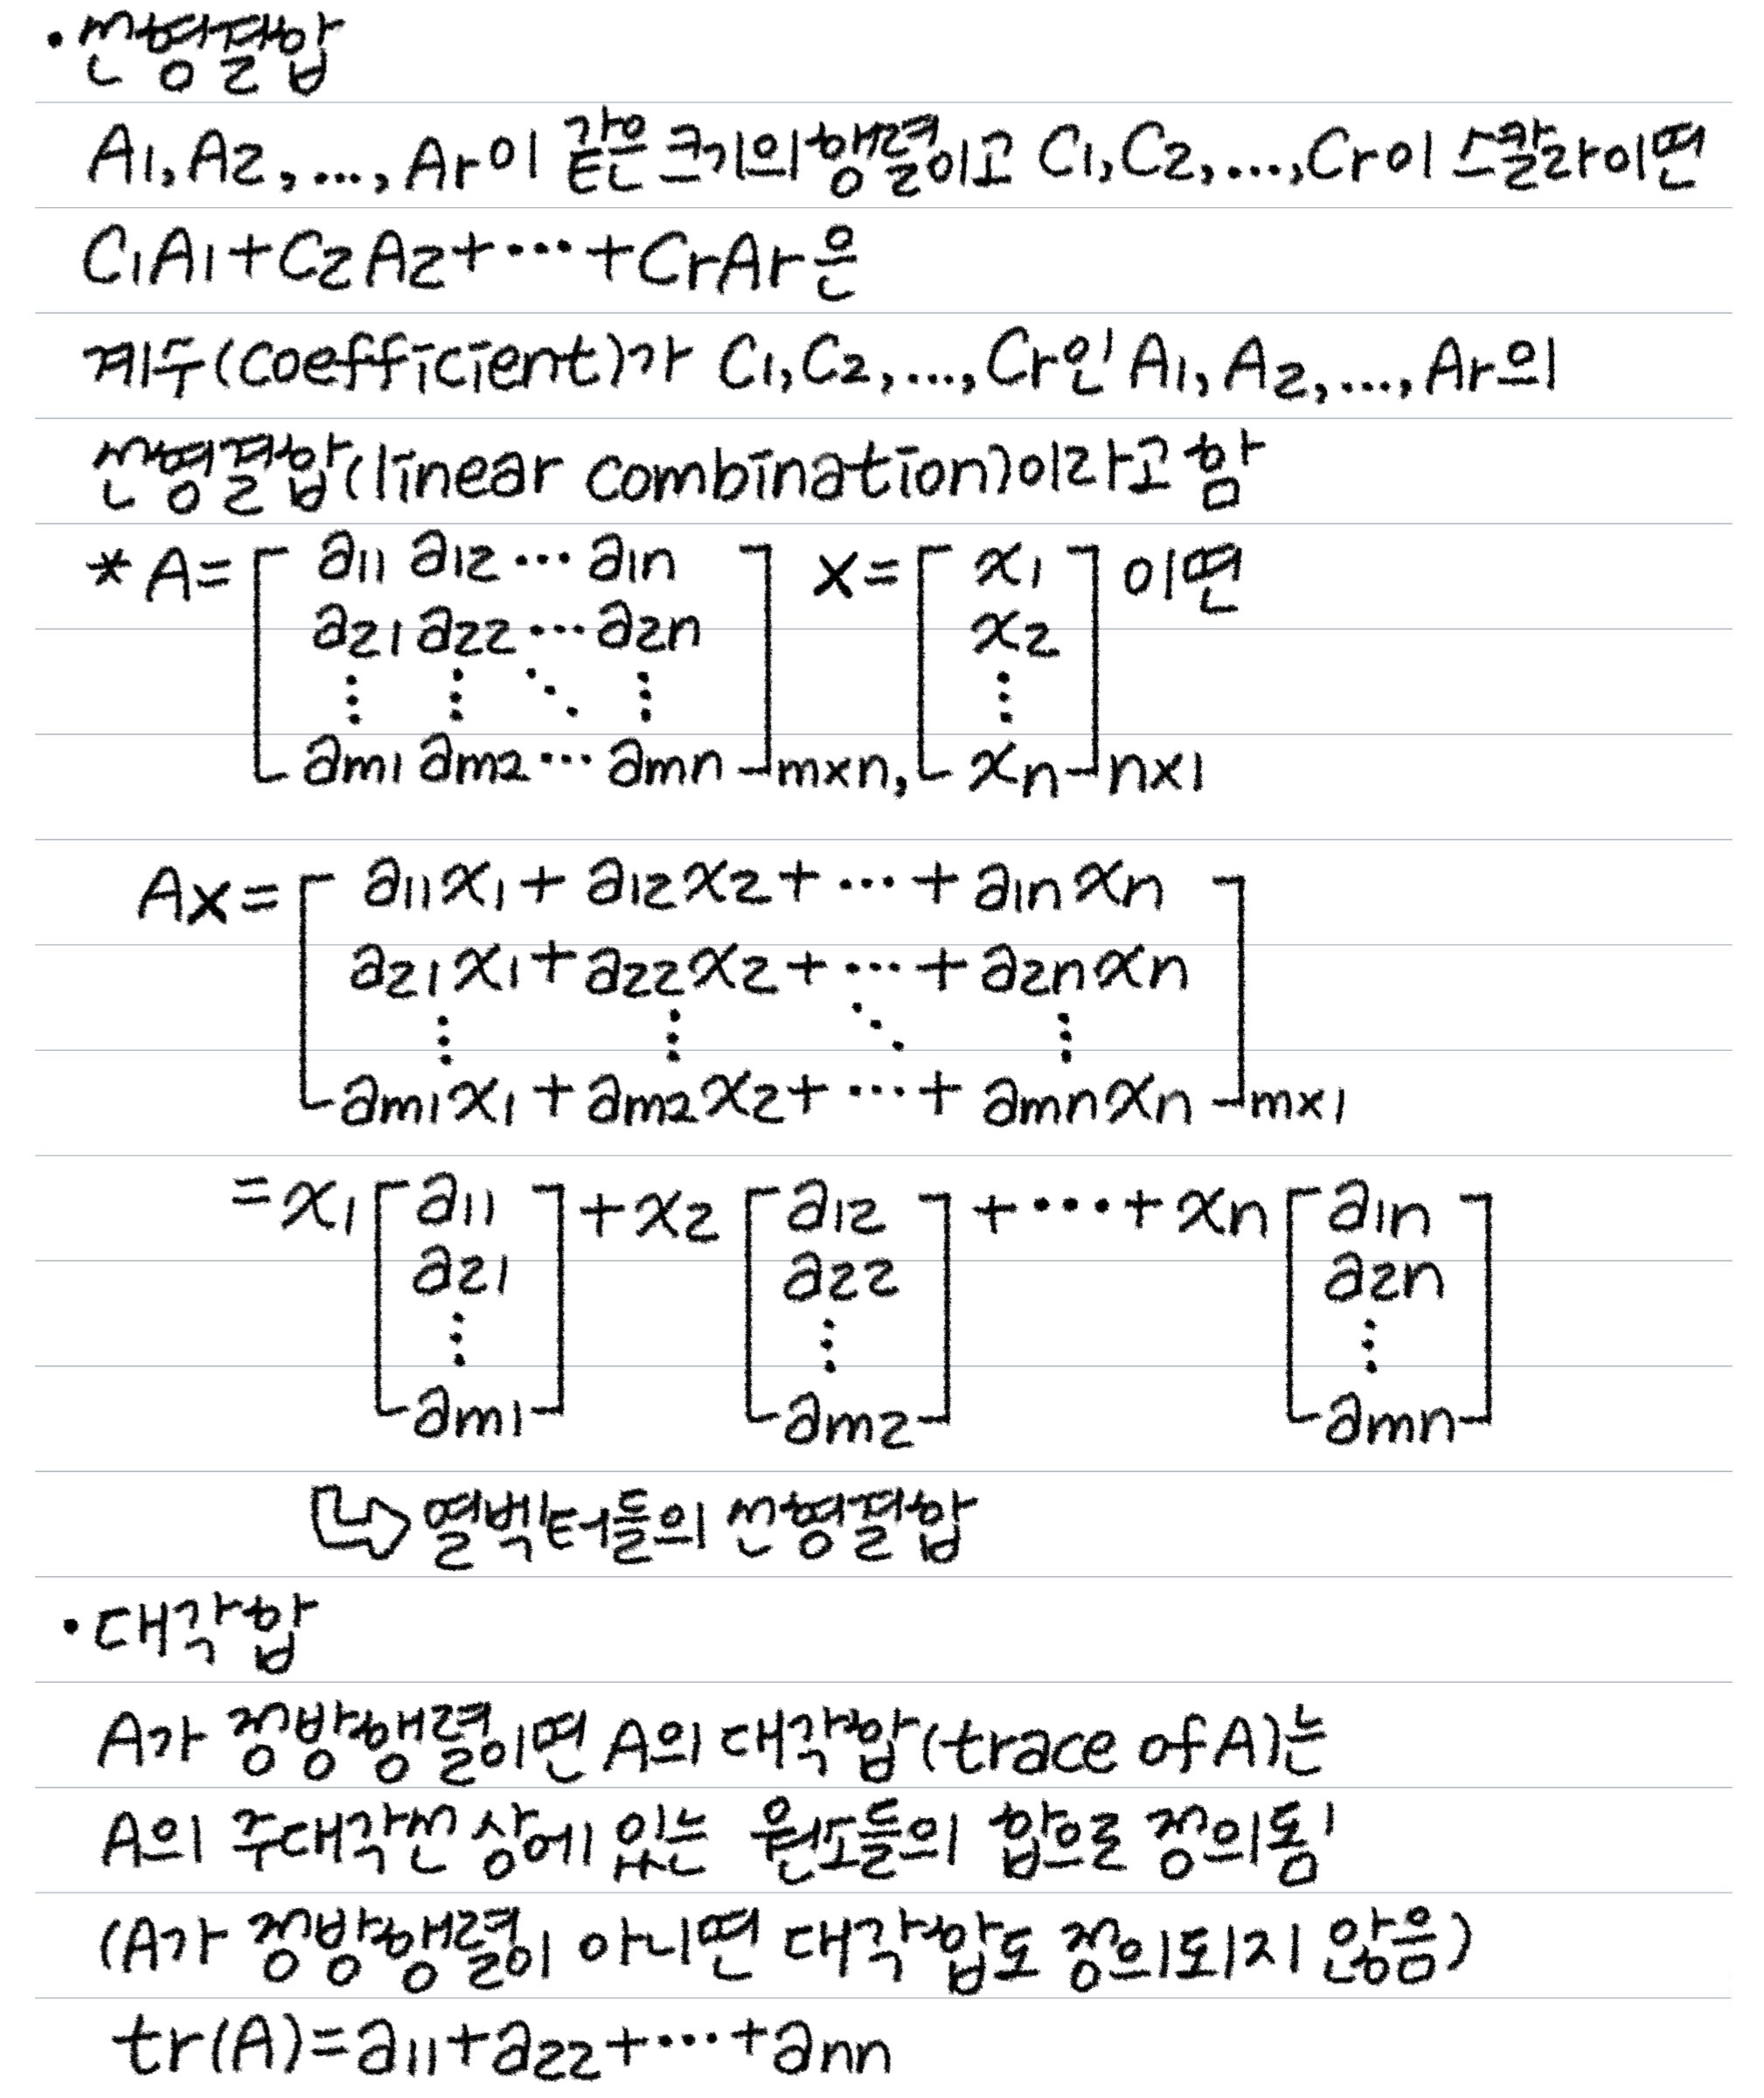 • 선형결합
A1, A2, ..., Ar이 같은 크기의 행렬이고 C1, C2, ..., Cr이 스칼라이면
C1A1+C2A2+⋯+CrAr은
계수(coefficient)가 C1, C2, ..., Cr인 A1, A2, ..., Ar의
선형결합(linear combination)이라고 함
* A=[ a11 a12 ⋯ a1n x=[ x1 ] 이면
a21 a22 ⋯ a2n x2
⋮ ⋮ ⋱ ⋮ ⋮
am1 am2 ⋯ amn ]mxn, xn ]nx1
Ax=[ a11x1+a12x2+⋯+a1nxn
a21x1+a22x2+⋯+a2nxn
⋮ ⋮ ⋱ ⋮
am1x1+am2x2+⋯+amnxn ]mx1
=x1[ a11 ]+x2[ a12 ]+⋯+xn[ a1n ]
a21 a22 a2n
⋮ ⋮ ⋮
am1 am2 amn
열벡터들의 선형결합
• 대각합
A가 정방행렬이면 A의 대각합(trace of A)는
A의 주대각선 상에 있는 원소들의 합으로 정의됨
(A가 정방행렬이 아니면 대각합도 정의되지 않음)
tr(A)=a11+a22+⋯+ann